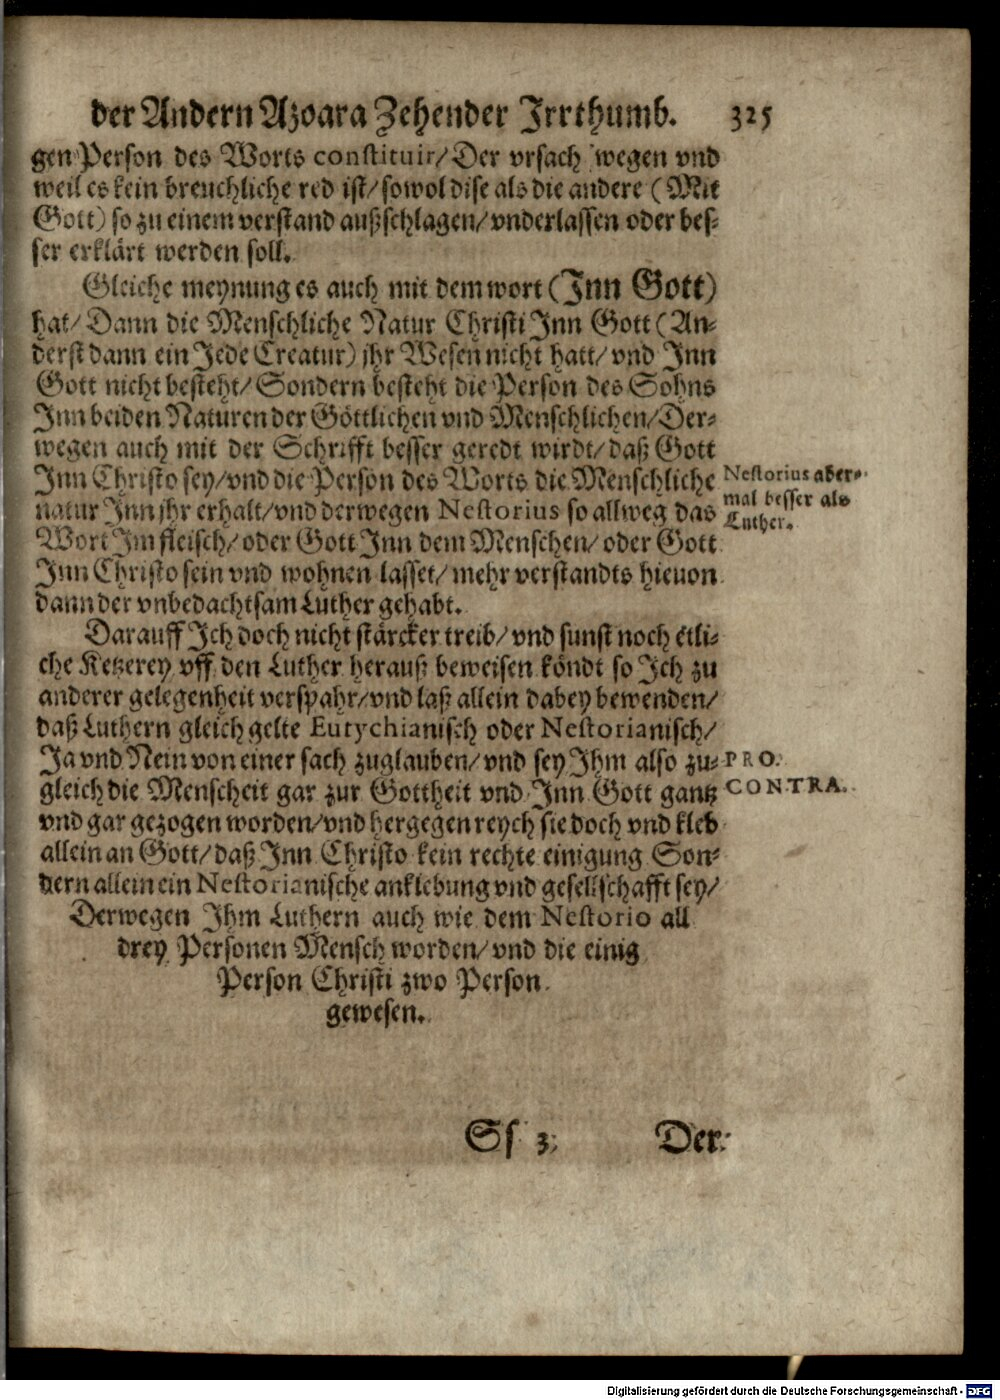 der Andern Azoara Zehender Jrrthumb. 325
gen Person des Worts constituir/Der vrsach wegen vnd
weil es kein breuchliche red ist/sowol dise als die andere (Mit
Gott) so zu einem verstand außschlagen/vnderlassen oder bes-
ser erklärt werden soll.
Gleiche meynung es auch mit dem wort (Jnn Gott)
hat/Dann die Menschliche Natur Christi Jnn Gott (An-
derst dann ein Jede Creatur) jhr Wesen nicht hatt/vnd Jnn
Gott nicht besteht/Sondern besteht die Person des Sohns
Jnn beiden Naturen der Göttlichen vnd Menschlichen/Der-
wegen auch mit der Schrifft besser geredt wirdt/daß Gott
Jnn Christo sey/vnd die Person des Worts die Menschliche
natur Jnn jhr erhalt/vnd derwegen Nestorius so allweg das
Wort Jm fleisch/oder Gott Jnn dem Menschen/oder Gott
Jnn Christo sein vnd wohnen lasset/mehr verstandts hieuon
dann der vnbedachtsam Luther gehabt.
Nestorius aber-
mal besser als
Luther.
Darauff Jch doch nicht stärcker treib/vnd sunst noch etli-
che Ketzerey vff den Luther herauß beweisen köndt so Jch zu
anderer gelegenheit verspahr/vnd laß allein dabey bewenden/
daß Luthern gleich gelte Eutychianisch oder Nestorianisch/
Ja vnd Nein von einer sach zuglauben/vnd sey Jhm also zu-
gleich die Menscheit gar zur Gottheit vnd Jnn Gott gantz
vnd gar gezogen worden/vnd hergegen reych sie doch vnd kleb
allein an Gott/daß Jnn Christo kein rechte einigung Son-
dern allein ein Nestorianische anklebung vnd gesellschafft sey/
Derwegen Jhm Luthern auch wie dem Nestorio all
drey Personen Mensch worden/vnd die einig
Person Christi zwo Person
gewesen.
PRO.
CONTRA.
Ss 3 Der
Digitalisierung gefördert durch die Deutsche Forschungsgemeinschaft - DFG